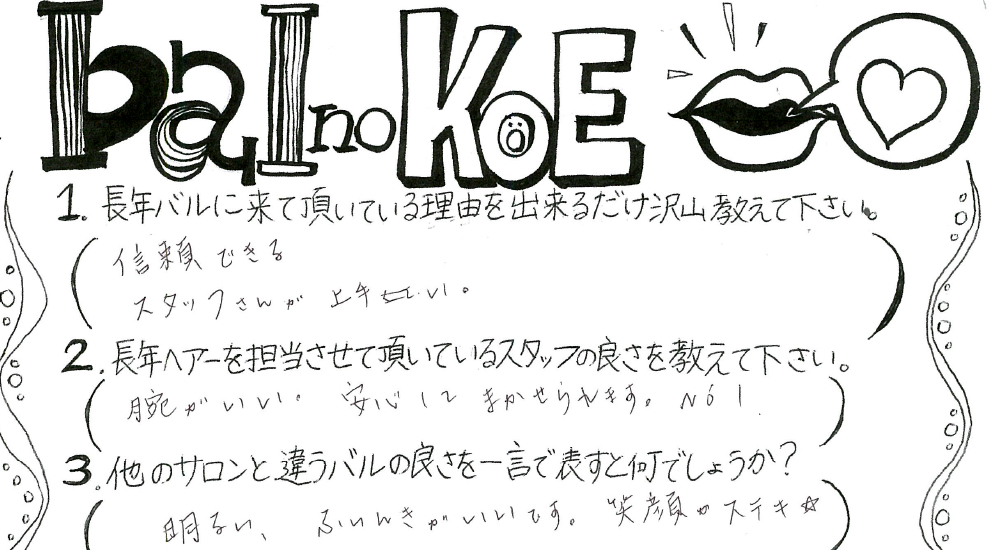 bal no KOE
1. 長年バルに来て頂いている理由を出来るだけ沢山教えて下さい。
信頼できる
スタッフさんが上手い。
2. 長年ヘアーを担当させて頂いているスタッフの良さを教えて下さい。
腕がいい。安心してまかせられます。No1.
3. 他のサロンと違うバルの良さを一言で表すと何でしょうか？
明るい、ふいんきがいいです。笑顔がステキ☆